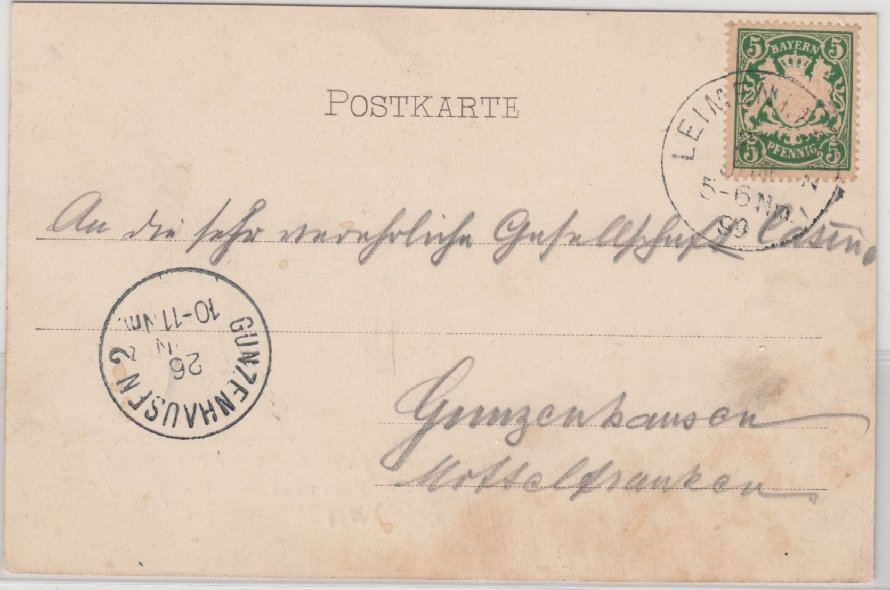 POSTKARTE
5 BAYERN 5
5 PFENNIG 5
LEIM
5-6 Nm.
99
An die sehr verehrliche Gesellschaft Casino
GUNZENHAUSEN 2
26
10-11 Nm.
Gunzenhausen
Mittelfranken